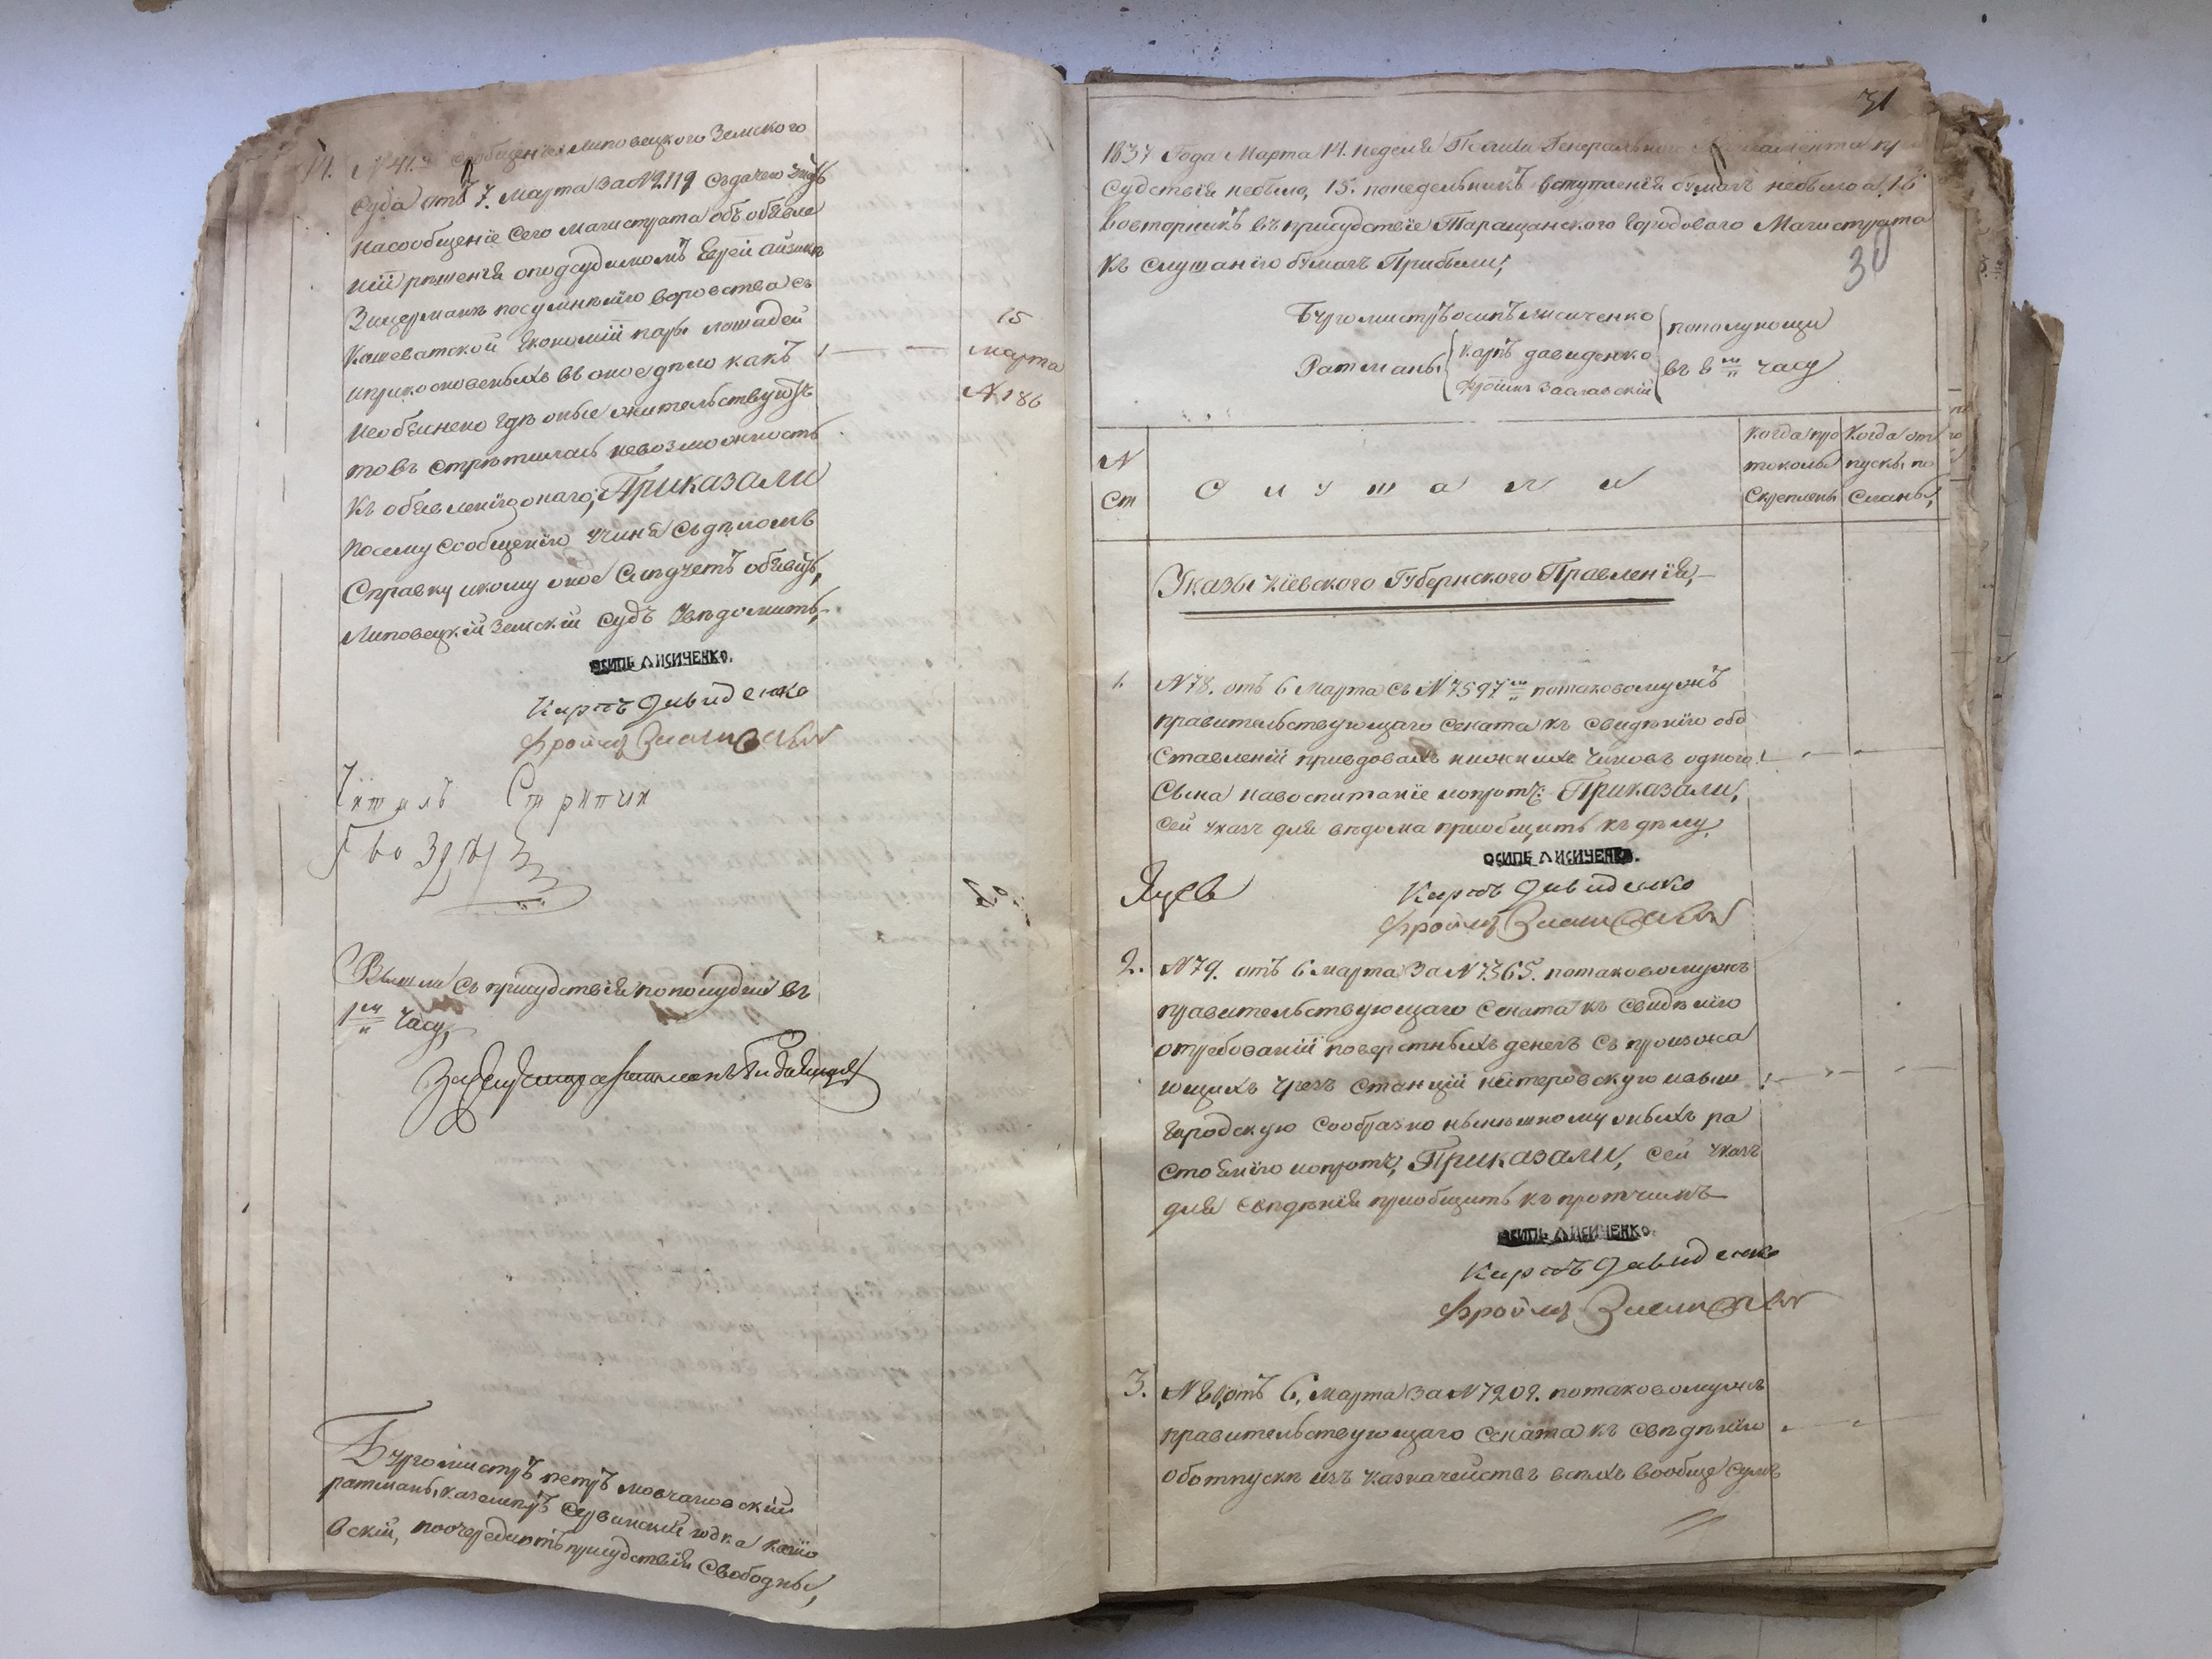 11. N 412 сообщение Липовецкого Земского
Суда отъ 7. Марта за N 2119 съ дачею знать
на сообщение сего Магистрата объ объявле
нии решения о подсудимомъ Еврей Айзикъ
Зицерманъ по сумнению воровства съ
Кошеватской Економии пары лошадей
и прикосновенныхъ въ оное дело какъ
необяснено где оные жительствуютъ
то въ стретилась невозможность
къ объявлению онаго; Приказали
по сему сообщению учиня съ деломъ
справку и кому оное следуетъ объявить,
Липовецкий Земский Судъ уведомить,
15
Марта
N 186
ОСИПЪ ЛИСИЧЕНКО.
Карпъ Давиденко
Фроимъ Заславский
Читалъ Стряпчий
Вышли съ присудствия по полудни въ
1м часу,
Бургомистръ Петръ Мовчановский
ратманы, Каземиръ Сурвинский Юдка
вский, по очереди отъ присудствия свободны,
31
1837 Года Марта 14. неделя По силе Генерального Регламента при
судствия небыло, 15. понедельникъ вступления бумагъ небыло а, 16
во вторникъ въ присудствие Таращанского Городоваго Магистрата
къ слушанию бумагъ Прибыли;
30
Бургомистръ Осипъ Лисиченко
Ратманы Карпъ Давиденко
Фроимъ Заславский
по полунощи
въ 8м часу
N
Ст
Слушали
Когда про
токолы
Скреплены
Когда от
пуски по
сланы,
Указы Киевского Губернского Правления,
1. N 78. отъ 6 Марта съ N 7597м по таковому жъ
правительствующаго Сената къ сведению объ
оставлении при вдовахъ нижнихъ чиновъ одного
Сына на воспитание и проч: Приказали,
сей указъ для ведома приобщить къ делу,
ОСИПЪ ЛИСИЧЕНКО.
Карпъ Давиденко
Фроимъ Заславский
2. N 79. отъ 6 Марта за N 7365. по таковому жъ
правительствующаго Сената къ сведению
о требовании поверстныхъ денегъ съ проезжа
ющихъ чрезъ станции
городскую сообразно нынешному оныхъ ра
стоянию и проч, Приказали, сей указъ
для сведения приобщить къ протчимъ
ОСИПЪ ЛИСИЧЕНКО.
Карпъ Давиденко
Фроимъ Заславский
3. отъ 6, Марта за N 7209. по таковому жъ
правительствующаго Сената къ сведению
об отпуске изъ казначействъ всехъ вообще сумъ